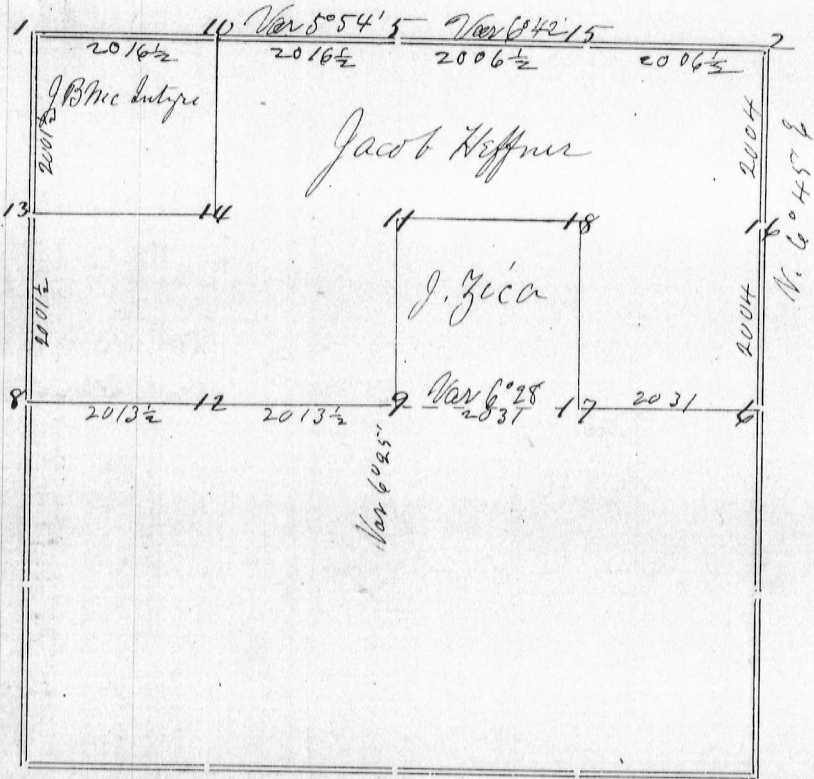 1 10 Var 5° 54' 5 Var 6° 42' 15 2
2016½ 2016½ 2006½ 2006½
J B Mc Intyre
2001½
Jacob Heffner
2004
N. 6° 45' E
13 14 11 18 16
J. Zica
2001½
2004
8 2013½ 12 2013½ 9 Var 6° 28 2031 17 2031 6
Var 6° 25'